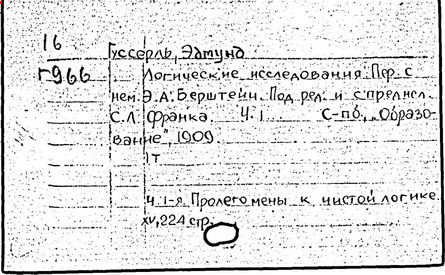 16
Г966
Гуссерль, Эдмунд
Логические исследования. Пер. с
нем. Э.А. Берштейн. Под ред. и с предисл.
С.Л. Франка. Ч. I С-пб., „Образо-
вание", 1909
1т
Ч. 1-я. Пролегомены к чистой логике.
XV, 224 стр.